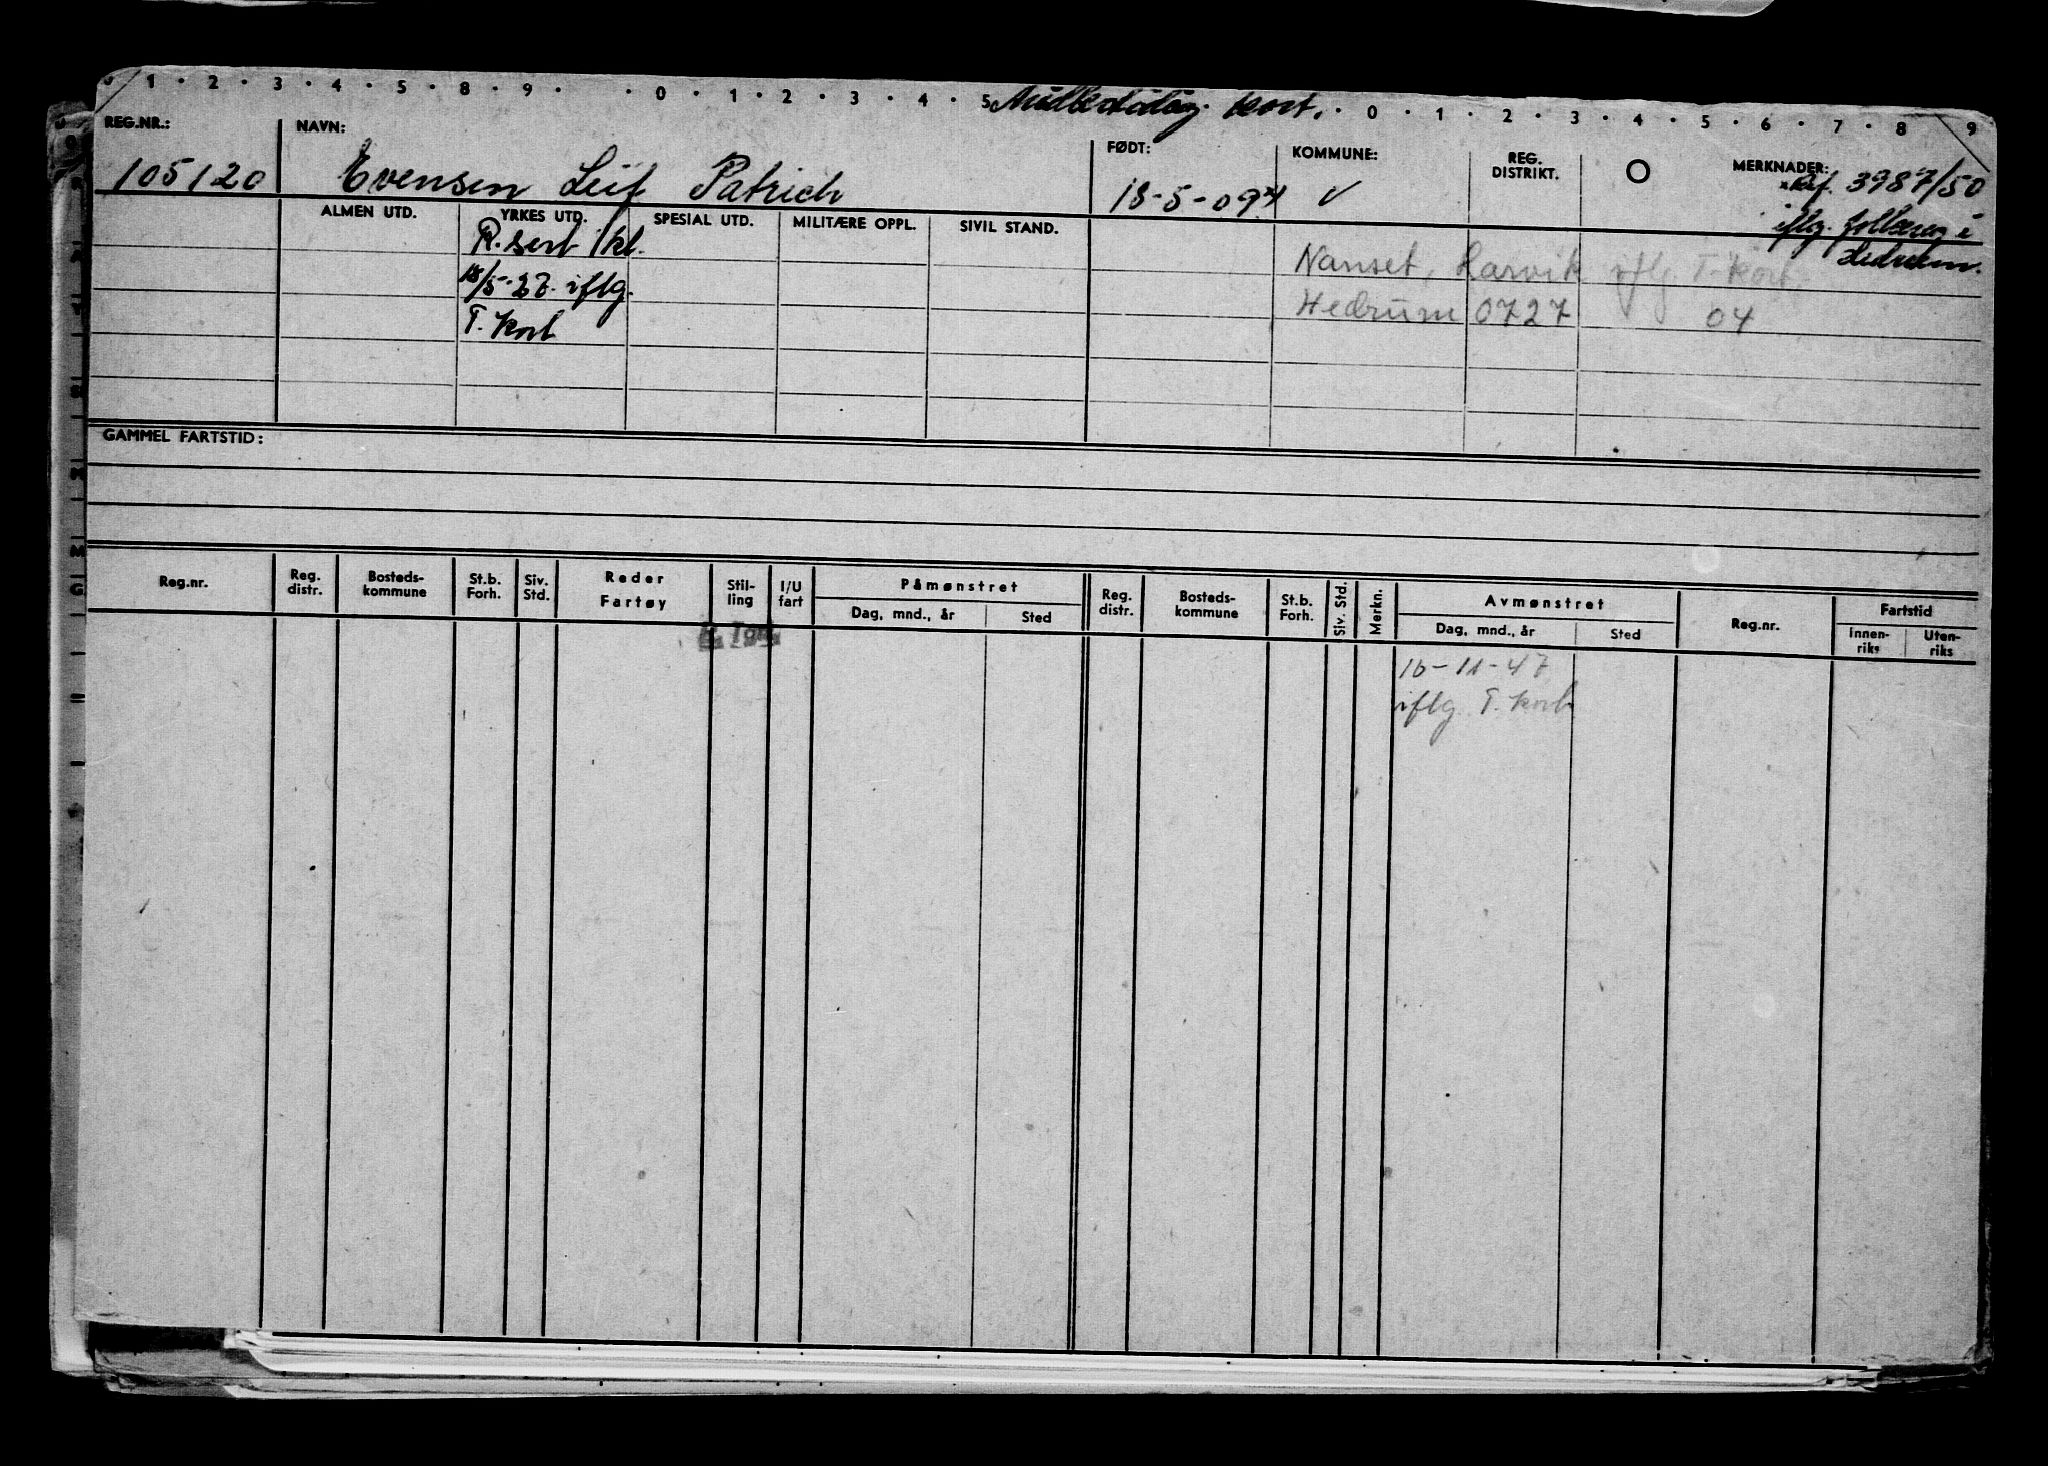 1 2 3 4 5 8 9 0 1 2 3 4 5 kort. 0 1 2 3 4 5 6 7 8 9
REG.NR.: NAVN: FØDT: KOMMUNE: REG. DISTRIKT. O MERKNADER:
105120 Evensen Leif Patrich 18-5-09 ✓ 3987/50
iflg. i
Hedrum.
ALMEN UTD. YRKES UTD. SPESIAL UTD. MILITÆRE OPPL. SIVIL STAND.
R. sert 1kl.
18/5-27. iflg.
T. kort
Nanset, Larvik iflg T-kort.
Hedrum 0727 04
GAMMEL FARTSTID:
Reg.nr. Reg. distr. Bosteds-kommune St.b. Forh. Siv. Std. Reder Fartøy Stil-ling I/U fart Påmønstret Dag, mnd., år Sted Reg. distr. Bosteds-kommune St.b. Forh. Siv. Std. Merkn. Avmønstret Dag, mnd., år Sted Reg.nr. Fartstid Innen-riks Uten-riks
16-11-47
iflg T. kort